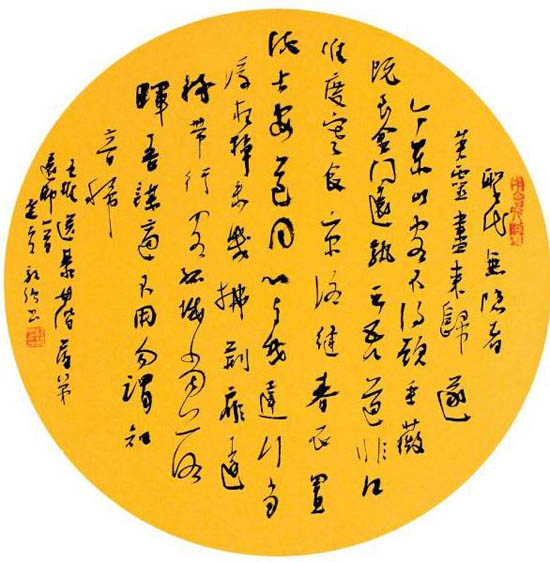 聖代無隱者
英靈盡來歸遂
令東山客不得顧采薇
既至金門遠孰云吾道非江
淮度寒食京洛縫春衣置
酒長安道同心與我違行當
浮桂棹未幾拂荊扉遠
樹帶行客孤城當落
暉吾謀適不用勿謂知
音稀
王維送綦毋潛落第
還鄉一首
書